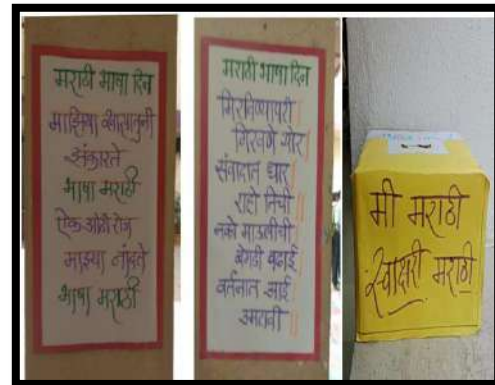 मराठी भाषा दिन
माझिया श्वासातुनी
झंकारते
भाषा मराठी
ऐक ओठी रोज
माझ्या नांदते
भाषा मराठी
मराठी भाषा दिन
मिरविण्यापरी
गिरवणे थोर
संवादात धार
राहो तिची
नको माऊलीची
बेगडी बढाई
वर्तनात आई
उमटावी
मी मराठी
स्वाक्षरी मराठी